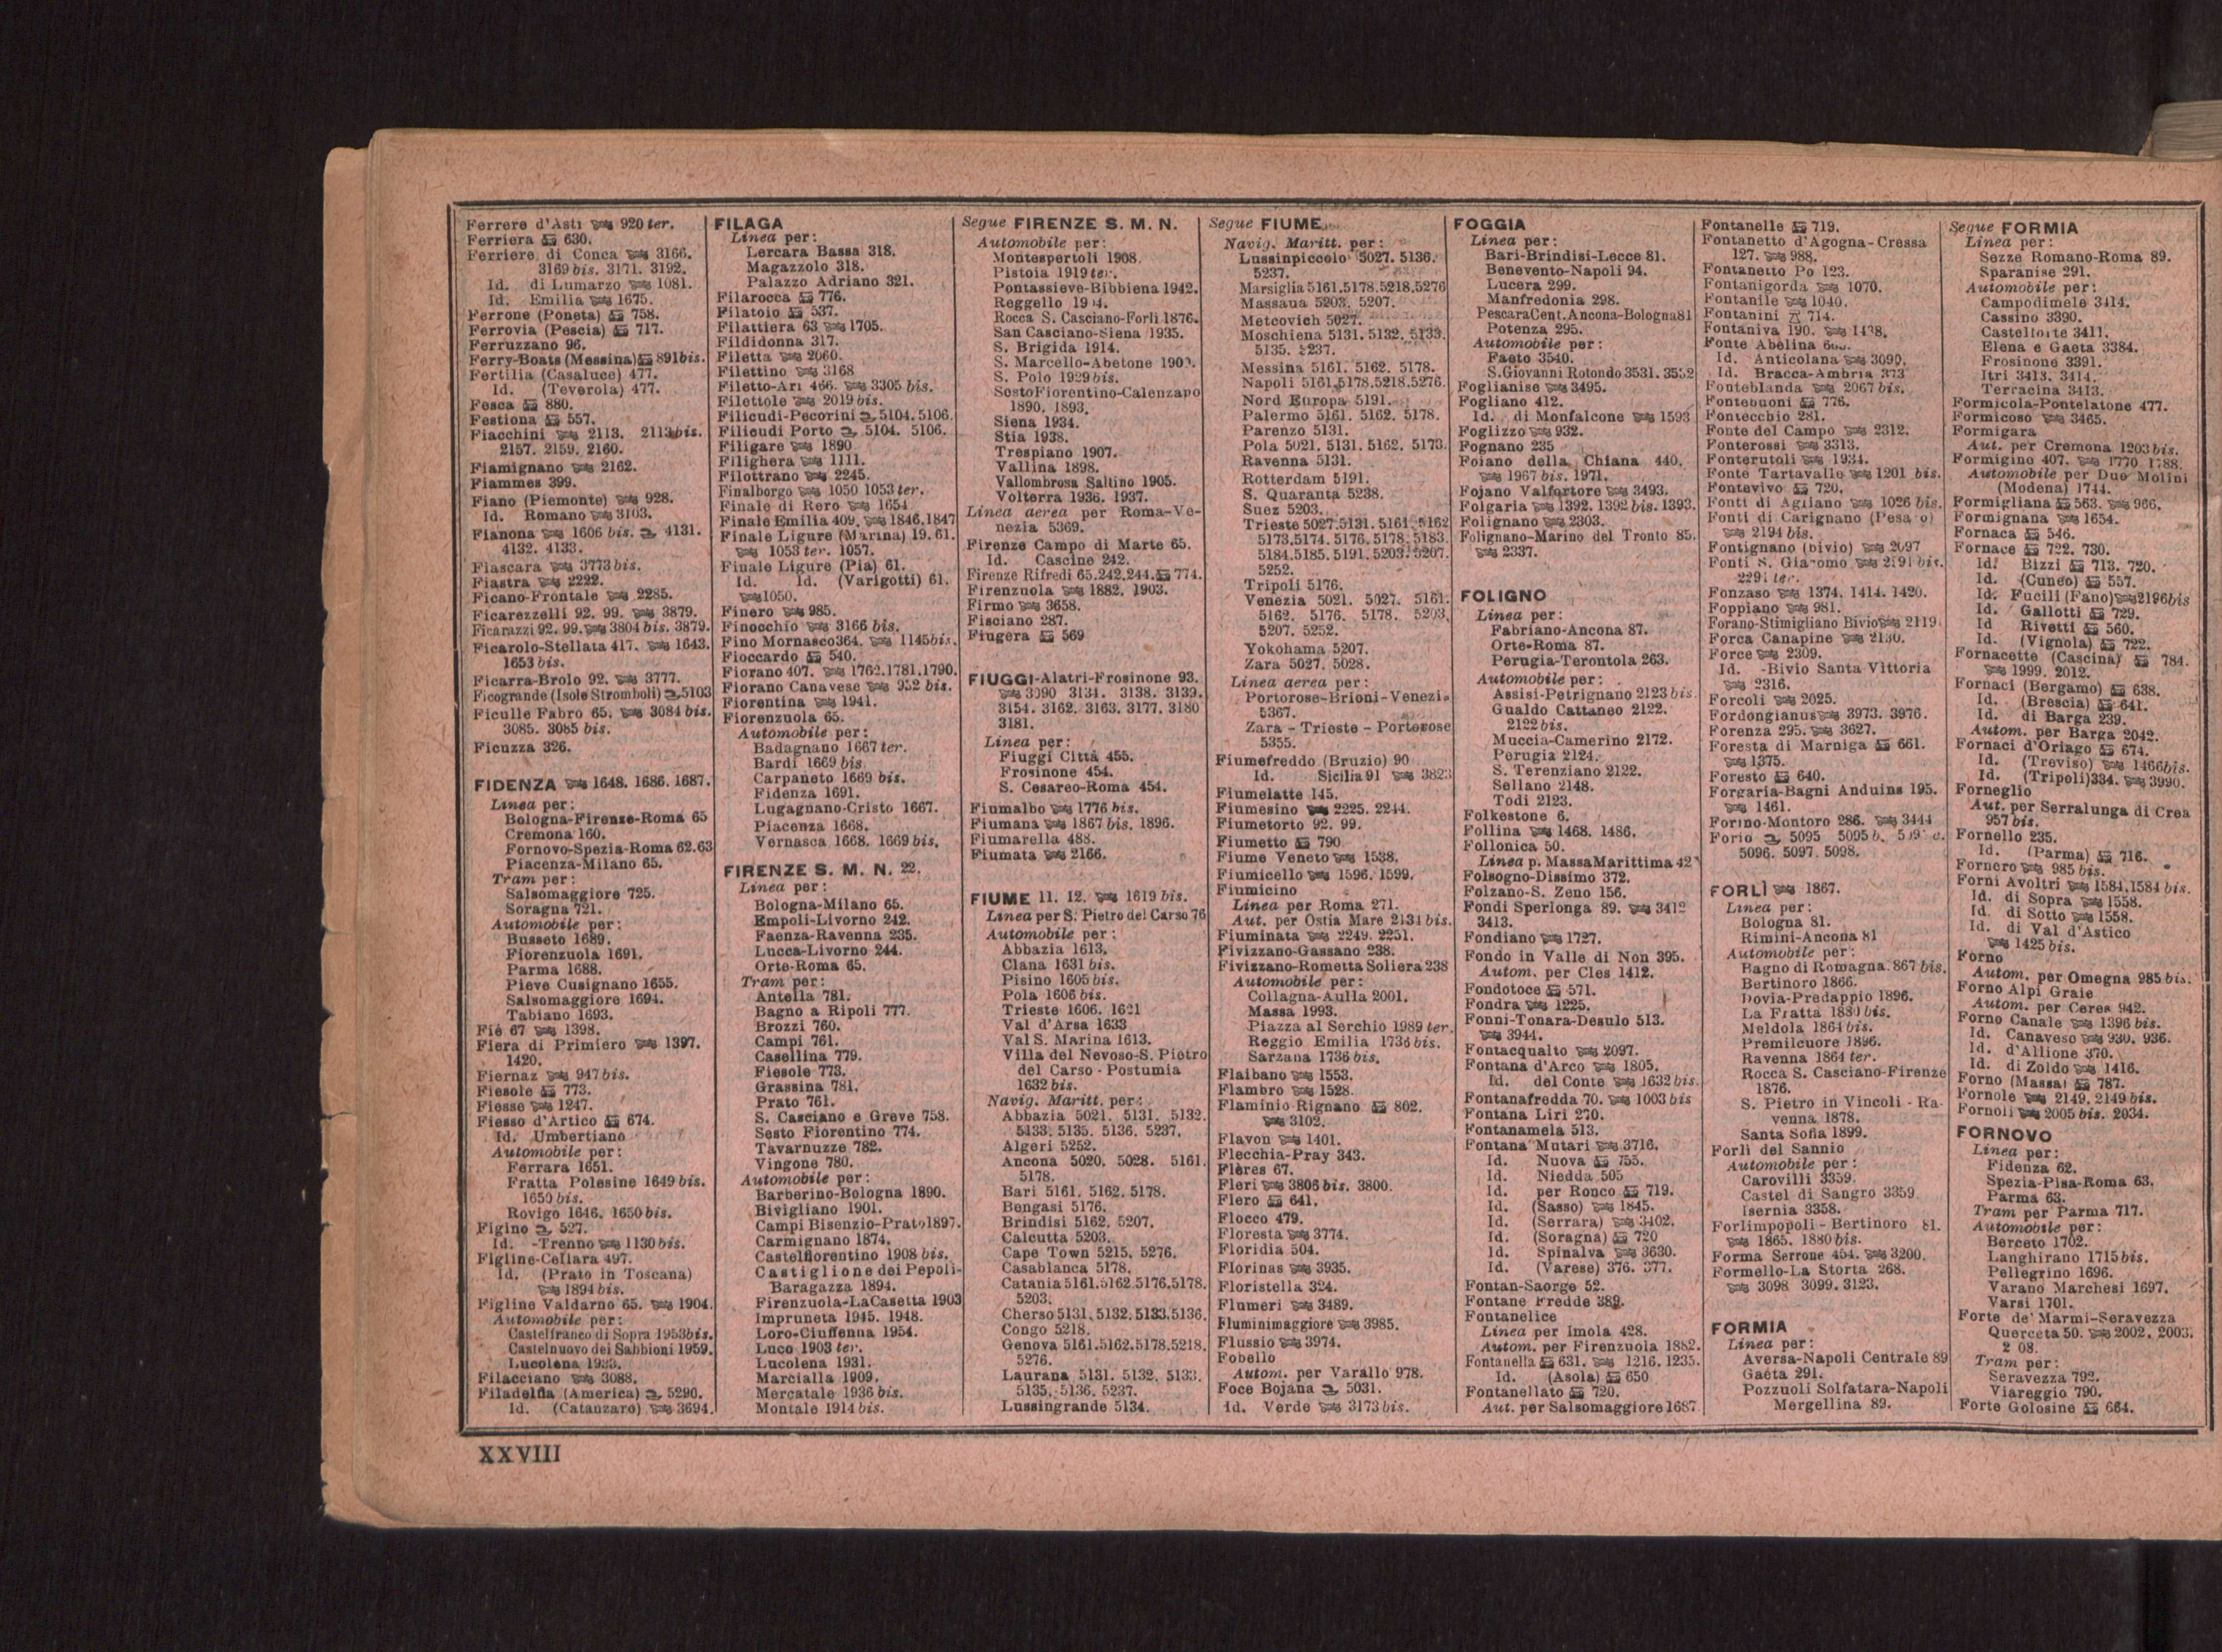 Ferrere d'Asti 920 ter.
Ferriera 630.
Ferriere di Conca 3166.
3169 bis. 3171. 3192.
Id. di Lumarzo 1081.
Id. Emilia 1675.
Ferrone (Poneta) 758.
Ferrovia (Pescia) 717.
Ferruzzano 96.
Ferry-Boats (Messina) 891 bis.
Fertilia (Casaluce) 477.
Id. (Teverola) 477.
Fesca 880.
Festiona 557.
Fiacchini 2113. 2113 bis.
2157. 2159. 2160.
Fiamignano 2162.
Fiammes 399.
Fiano (Piemonte) 928.
Id. Romano 3103.
Fianona 1606 bis. 4131.
4132. 4133.
Fiascara 3773 bis.
Fiastra 2222.
Ficano-Frontale 2285.
Ficarezzelli 92. 99. 3879.
Ficarazzi 92. 99. 3804 bis. 3879.
Ficarolo-Stellata 417. 1643.
1653 bis.
Ficarra-Brolo 92. 3777.
Ficogrande (Isole Stromboli) 5103
Ficulle Fabro 65. 3084 bis.
3085. 3085 bis.
Ficuzza 326.
FIDENZA 1648. 1686. 1687.
Linea per:
Bologna-Firenze-Roma 65
Cremona 160.
Fornovo-Spezia-Roma 62.63
Piacenza-Milano 65.
Tram per:
Salsomaggiore 725.
Soragna 721.
Automobile per:
Busseto 1689.
Fiorenzuola 1691.
Parma 1688.
Pieve Cusignano 1655.
Salsomaggiore 1694.
Tabiano 1693.
Fiè 67 1398.
Fiera di Primiero 1397.
1420.
Fiernaz 947 bis.
Fiesole 773.
Fiesse 1247.
Fiesso d'Artico 674.
Id. Umbertiano
Automobile per:
Ferrara 1651.
Fratta Polesine 1649 bis.
1650 bis.
Rovigo 1646. 1650 bis.
Figino 527.
Id. -Trenno 1130 bis.
Figline-Cellara 497.
Id. (Prato in Toscana)
1894 bis.
Figline Valdarno 65. 1904.
Automobile per:
Castelfranco di Sopra 1953 bis.
Castelnuovo dei Sabbioni 1959.
Lucolena
Filacciano 3088.
Filadelfia (America) 5290.
Id. (Catanzaro) 3694.
FILAGA
Linea per:
Lercara Bassa 318.
Magazzolo 318.
Palazzo Adriano 321.
Filarocca 776.
Filatoio 537.
Filattiera 63 1705.
Fildidonna 317.
Filetta 2060.
Filettino 3168
Filetto-Ari 466. 3305 bis.
Filettole 2019 bis.
Filicudi-Pecorini 5104. 5106.
Filicudi Porto 5104. 5106.
Filigare 1890
Filighera 1111.
Filottrano 2245.
Finalborgo 1050 1053 ter.
Finale di Rero 1654
Finale Emilia 409. 1846.1847
Finale Ligure (Marina) 19. 61.
1053 ter. 1057.
Finale Ligure (Pia) 61.
Id. Id. (Varigotti) 61.
1050.
Finero 985.
Finocchio 3166 bis.
Fino Mornasco 364. 1145 bis.
Fioccardo 540.
Fiorano 407. 1762.1781.1790.
Fiorano Canavese 952 bis.
Fiorentina 1941.
Fiorenzuola 65.
Automobile per:
Badagnano 1667 ter.
Bardi 1669 bis
Carpaneto 1669 bis.
Fidenza 1691.
Lugagnano-Cristo 1667.
Piacenza 1668.
Vernasca 1668. 1669 bis.
FIRENZE S. M. N. 22.
Linea per:
Bologna-Milano 65.
Empoli-Livorno 242.
Faenza-Ravenna 235.
Lucca-Livorno 244.
Orte-Roma 65.
Tram per:
Antella 781.
Bagno a Ripoli 777.
Brozzi 760.
Campi 761.
Casellina 779.
Fiesole 773.
Grassina 781.
Prato 761.
S. Casciano e Greve 758.
Sesto Fiorentino 774.
Tavarnuzze 782.
Vingone 780.
Automobile per:
Barberino-Bologna 1890.
Bivigliano 1901.
Campi Bisenzio-Prato 1897.
Carmignano 1874.
Castelfiorentino 1908 bis.
Castiglione dei Pepoli-
Baragazza 1894.
Firenzuola-La Casetta 1903
Impruneta 1945. 1948.
Loro-Ciuffenna 1954.
Luco 1903 ter.
Lucolena 1931.
Marcialla 1909.
Mercatale 1936 bis.
Montale 1914 bis.
Segue FIRENZE S. M. N.
Automobile per:
Montespertoli 1908.
Pistoia 1919 ter.
Pontassieve-Bibbiena 1942.
Reggello
Rocca S. Casciano-Forlì 1876.
San Casciano-Siena 1935.
S. Brigida 1914.
S. Marcello-Abetone
S. Polo 1929 bis.
Sesto Fiorentino-Calenzano
1890. 1893.
Siena 1934.
Stia 1938.
Trespiano 1907.
Vallina 1898.
Vallombrosa Saltino 1905.
Volterra 1936. 1937.
Linea aerea per Roma-Ve-
nezia 5369.
Firenze Campo di Marte 65.
Id. Cascine 242.
Firenze Rifredi 65.242.244. 774.
Firenzuola 1882. 1903.
Firmo 3658.
Fisciano 287.
Fiugera 569
FIUGGI-Alatri-Frosinone 93.
3090 3131. 3138. 3139.
3154. 3162. 3163. 3177. 3180
3181.
Linea per:
Fiuggi Città 455.
Frosinone 454.
S. Cesareo-Roma 454.
Fiumalbo 1776 bis.
Fiumana 1867 bis. 1896.
Fiumarella 488.
Fiumata 2166.
FIUME 11. 12. 1619 bis.
Linea per S. Pietro del Carso 76
Automobile per:
Abbazia 1613.
Clana 1631 bis.
Pisino 1605 bis.
Pola 1606 bis.
Trieste 1606. 1621
Val d'Arsa 1633
Val S. Marina 1613.
Villa del Nevoso-S. Pietro
del Carso - Postumia
1632 bis.
Navig. Maritt. per:
Abbazia 5021. 5131. 5132.
5133. 5135. 5136. 5237.
Algeri 5252.
Ancona 5020. 5028. 5161.
5178.
Bari 5161. 5162. 5178.
Bengasi 5176.
Brindisi 5162. 5207.
Calcutta 5203.
Cape Town 5215. 5276.
Casablanca 5178.
Catania 5161.5162.5176.5178.
5203.
Cherso 5131. 5132. 5133.5136.
Congo 5218.
Genova 5161.5162.5178.5218.
5276.
Laurana 5131. 5132. 5133.
5135. 5136. 5237.
Lussingrande 5134.
Segue FIUME
Navig. Maritt. per:
Lussinpiccolo 5027. 5136.
5237.
Marsiglia 5161.5178.5218.5276
Massaua 5203. 5207.
Metcovich 5027.
Moschiena 5131. 5132. 5133.
5135. 5237.
Messina 5161. 5162. 5178.
Napoli 5161.5178.5218.5276.
Nord Europa 5191.
Palermo 5161. 5162. 5178.
Parenzo 5131.
Pola 5021. 5131. 5162. 5173.
Ravenna 5131.
Rotterdam 5191.
S. Quaranta 5238.
Suez 5203.
Trieste 5027.5131. 5161. 5162
5173.5174. 5176. 5178. 5183.
5184.5185. 5191. 5203. 5207.
5252.
Tripoli 5176.
Venezia 5021. 5027. 5161.
5162. 5176. 5178. 5203.
5207. 5252.
Yokohama 5207.
Zara 5027. 5028.
Linea aerea per:
Portorose-Brioni-Venezia
5367.
Zara - Trieste - Portorose
5355.
Fiumefreddo (Bruzio) 90
Id. Sicilia 91 3823
Fiumelatte 145.
Fiumesino 2225. 2244.
Fiumetorto 92. 99.
Fiumetto 790
Fiume Veneto 1538.
Fiumicello 1596. 1599.
Fiumicino
Linea per Roma 271.
Aut. per Ostia Mare 2131 bis.
Fiuminata 2249. 2251.
Fivizzano-Gassano 238.
Fivizzano-Rometta Soliera 238
Automobile per:
Collagna-Aulla 2001.
Massa 1993.
Piazza al Serchio 1989 ter.
Reggio Emilia 1736 bis.
Sarzana 1736 bis.
Flaibano 1553.
Flambro 1528.
Flaminio Rignano 802.
3102.
Flavon 1401.
Flecchia-Pray 343.
Flères 67.
Fleri 3806 bis. 3800.
Flero 641.
Flocco 479.
Floresta 3774.
Floridia 504.
Florinas 3935.
Floristella 324.
Flumeri 3489.
Fluminimaggiore 3985.
Flussio 3974.
Fobello
Autom. per Varallo 978.
Foce Bojana 5031.
Id. Verde 3173 bis.
FOGGIA
Linea per:
Bari-Brindisi-Lecce 81.
Benevento-Napoli 94.
Lucera 299.
Manfredonia 298.
Pescara Cent. Ancona-Bologna 81
Potenza 295.
Automobile per:
Faeto 3540.
S. Giovanni Rotondo 3531. 3532
Foglianise 3495.
Fogliano 412.
Id. di Monfalcone 1593
Foglizzo 932.
Fognano 235
Foiano della Chiana 440.
1967 bis. 1971.
Fojano Valfortore 3493.
Folgaria 1392. 1392 bis. 1393.
Folignano 2303.
Folignano-Marino del Tronto 85.
2337.
FOLIGNO
Linea per:
Fabriano-Ancona 87.
Orte-Roma 87.
Perugia-Terontola 263.
Automobile per:
Assisi-Petrignano 2123 bis
Gualdo Cattaneo 2122.
2122 bis.
Muccia-Camerino 2172.
Perugia 2124.
S. Terenziano 2122.
Sellano 2148.
Todi 2123.
Folkestone 6.
Follina 1468. 1486.
Follonica 50.
Linea p. Massa Marittima 42
Folsogno-Dissimo 372.
Folzano-S. Zeno 156.
Fondi Sperlonga 89. 3412
3413.
Fondiano 1727.
Fondo in Valle di Non 395.
Autom. per Cles 1412.
Fondotoce 571.
Fondra 1225.
Fonni-Tonara-Desulo 513.
3944.
Fontacqualto 2097.
Fontana d'Arco 1805.
Id. del Conte 1632 bis.
Fontanafredda 70. 1003 bis
Fontana Liri 270.
Fontanamela 513.
Fontana Mutari 3716.
Id. Nuova 755.
Id. Niedda 505
Id. per Ronco 719.
Id. (Sasso) 1845.
Id. (Serrara) 3402.
Id. (Soragna) 720
Id. Spinalva 3630.
Id. (Varese) 376. 377.
Fontan-Saorge 52.
Fontane Fredde 389.
Fontanelice
Linea per Imola 428.
Autom. per Firenzuola 1882.
Fontanella 631. 1216. 1235.
Id. (Asola) 650
Fontanellato 720.
Aut. per Salsomaggiore 1687
Fontanelle 719.
Fontanetto d'Agogna-Cressa
127. 988.
Fontanetto Po 123.
Fontanigorda 1070.
Fontanile 1040.
Fontanini 714.
Fontaniva 190. 1438.
Fonte Abelina
Id. Anticolana 3090.
Id. Bracca-Ambria 373
Fonteblanda 2067 bis.
Fontebuoni 776.
Fontecchio 281.
Fonte del Campo 2312.
Fonterossi 3313.
Fonterutoli 1934.
Fonte Tartavalle 1201 bis.
Fontevivo 720.
Fonti di Agliano 1026 bis.
Fonti di Carignano (Pesaro)
2194 bis.
Fontignano (bivio) 2097
Fonti S. Giacomo 2291 bis.
2291 ter.
Fonzaso 1374. 1414. 1420.
Foppiano 981.
Forano-Stimigliano Bivio 2119
Forca Canapine 2130.
Force 2309.
Id. -Bivio Santa Vittoria
2316.
Forcoli 2025.
Fordongianus 3973. 3976.
Forenza 295. 3627.
Foresta di Marniga 661.
1375.
Foresto 640.
Forgaria-Bagni Anduins 195.
1461.
Forino-Montoro 286. 3444
Forio 5095 5095 b.
5096. 5097. 5098.
FORLÌ 1867.
Linea per:
Bologna 81.
Rimini-Ancona 81
Automobile per:
Bagno di Romagna 867 bis.
Bertinoro 1866.
Dovia-Predappio 1896.
La Fratta 1880 bis.
Meldola 1864 bis.
Premilcuore 1896.
Ravenna 1864 ter.
Rocca S. Casciano-Firenze
1876.
S. Pietro in Vincoli - Ra-
venna 1878.
Santa Sofia 1899.
Forlì del Sannio
Automobile per:
Carovilli 3359.
Castel di Sangro 3359
Isernia 3358.
Forlimpopoli - Bertinoro 81.
1865. 1880 bis.
Forma Serrone 454. 3200.
Formello-La Storta 268.
3098 3099. 3123.
FORMIA
Linea per:
Aversa-Napoli Centrale 89
Gaeta 291.
Pozzuoli Solfatara-Napoli
Mergellina 89.
Segue FORMIA
Linea per:
Sezze Romano-Roma 89.
Sparanise 291.
Automobile per:
Campodimele 3414.
Cassino 3390.
Castelforte 3411.
Elena e Gaeta 3384.
Frosinone 3391.
Itri 3413. 3414.
Terracina 3413.
Formicola-Pontelatone 477.
Formicoso 3465.
Formigara
Aut. per Cremona 1203 bis.
Formigine 407. 1770. 1788.
Automobile per Due Molini
(Modena) 1744.
Formigliana 563. 966.
Formignana 1654.
Fornaca 546.
Fornace 722. 730.
Id. Bizzi 713. 720.
Id. (Cuneo) 557.
Id. Fucili (Fano) 2196 bis
Id. Gallotti 729.
Id Rivetti 560.
Id. (Vignola) 722.
Fornacette (Cascina) 784.
1999. 2012.
Fornaci (Bergamo) 638.
Id. (Brescia) 641.
Id. di Barga 239.
Autom. per Barga 2042.
Fornaci d'Oriago 674.
Id. (Treviso) 1466 bis.
Id. (Tripoli) 334. 3990.
Forneglio
Aut. per Serralunga di Crea
957 bis.
Fornello 235.
Id. (Parma) 716.
Fornero 985 bis.
Forni Avoltri 1584.1584 bis.
Id. di Sopra 1558.
Id. di Sotto 1558.
Id. di Val d'Astico
1425 bis.
Forno
Autom. per Omegna 985 bis.
Forno Alpi Graie
Autom. per Ceres 942.
Forno Canale 1396 bis.
Id. Canavese 930. 936.
Id. d'Allione 370.
Id. di Zoldo 1416.
Forno (Massa) 787.
Fornole 2149. 2149 bis.
Fornoli 2005 bis. 2034.
FORNOVO
Linea per:
Fidenza 62.
Spezia-Pisa-Roma 63.
Parma 63.
Tram per Parma 717.
Automobile per:
Berceto 1702.
Langhirano 1715 bis.
Pellegrino 1696.
Varano Marchesi 1697.
Varsi 1701.
Forte de' Marmi-Seravezza
Querceta 50. 2002. 2003.
2 08.
Tram per:
Seravezza 792.
Viareggio 790.
Forte Golosine 664.
XXVIII